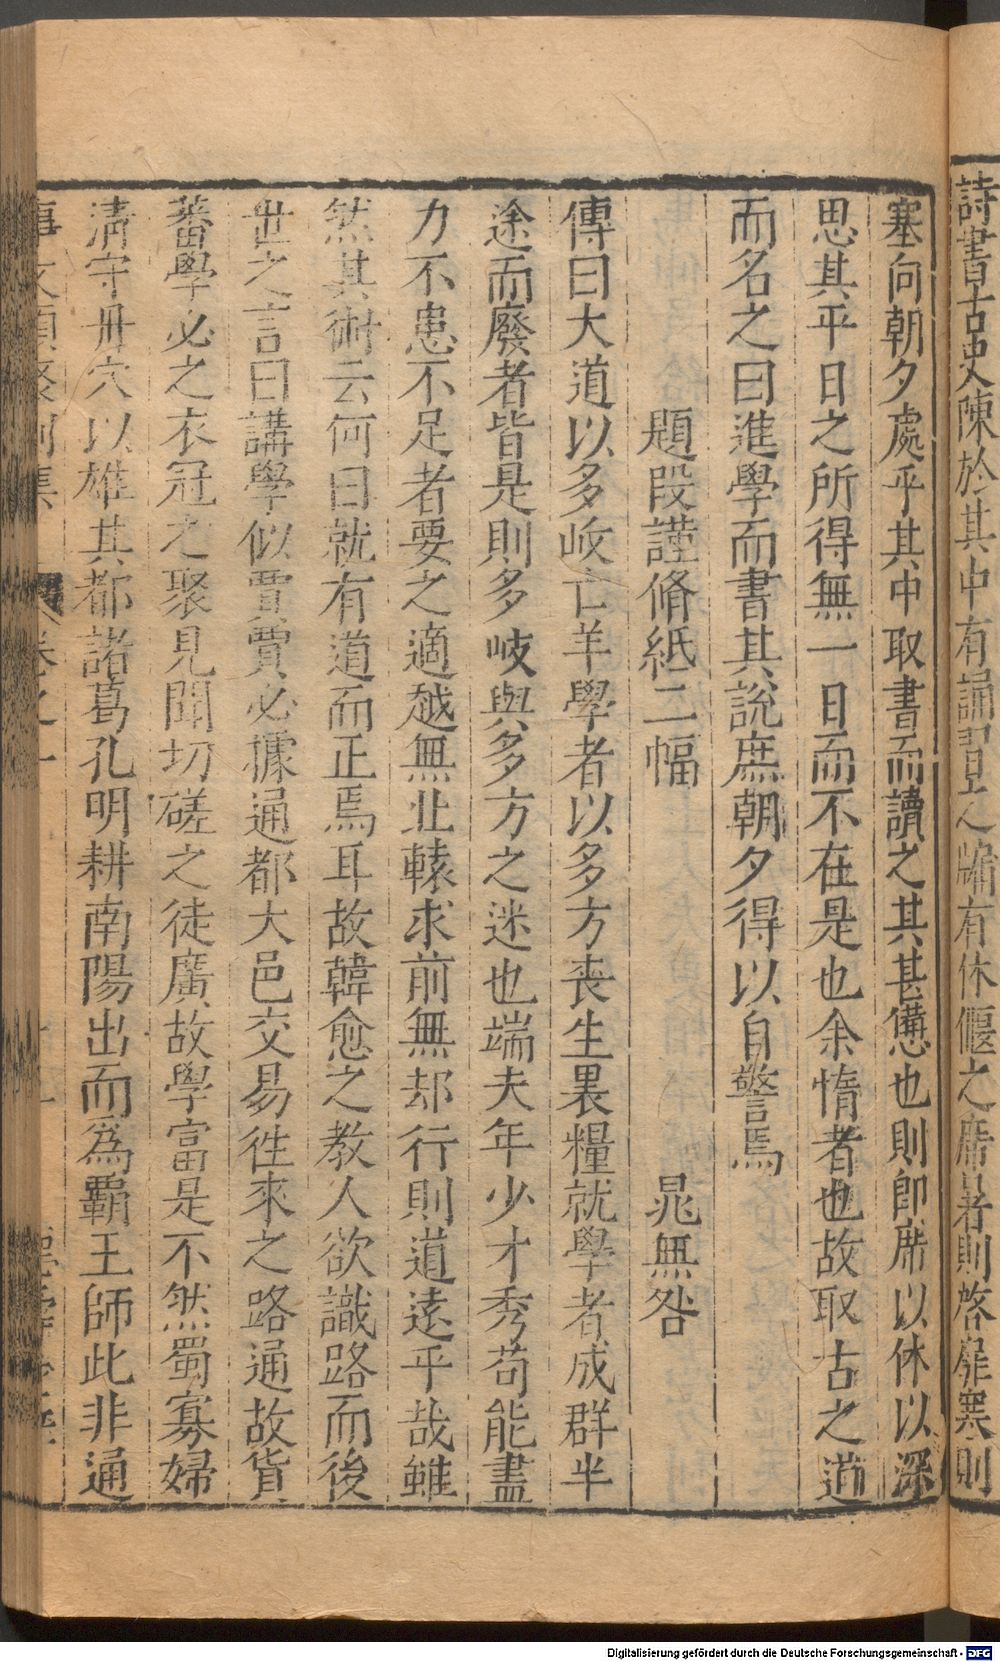 詩書古史陳於其中有誦習之牖有休偃之席暑則啓扉寒則
塞向朝夕處乎其中取書而讀之其甚憊也則即席以休以深
思其平日之所得無一日而不在是也余惰者也故取古之道
而名之曰進學而書其說庶朝夕得以自警焉
題段謹脩紙二幅 晁無咎
傳曰大道以多岐亡羊學者以多方喪生裹糧就學者成群半
途而廢者皆是則多岐與多方之迷也端夫年少才秀苟能盡
力不患不足者要之適越無北轅求前無却行則道遠乎哉雖
然其術云何曰就有道而正焉耳故韓愈之教人欲識路而後
世之言曰講學似賈賈必據通都大邑交易徃來之路通故貨
蕃學必之衣冠之聚見聞切磋之徒廣故學富是不然蜀寡婦
清守丹穴以雄其都諸葛孔明耕南陽出而爲霸王師此非通
事文類聚別集 卷之一
Digitalisierung gefördert durch die Deutsche Forschungsgemeinschaft - DFG